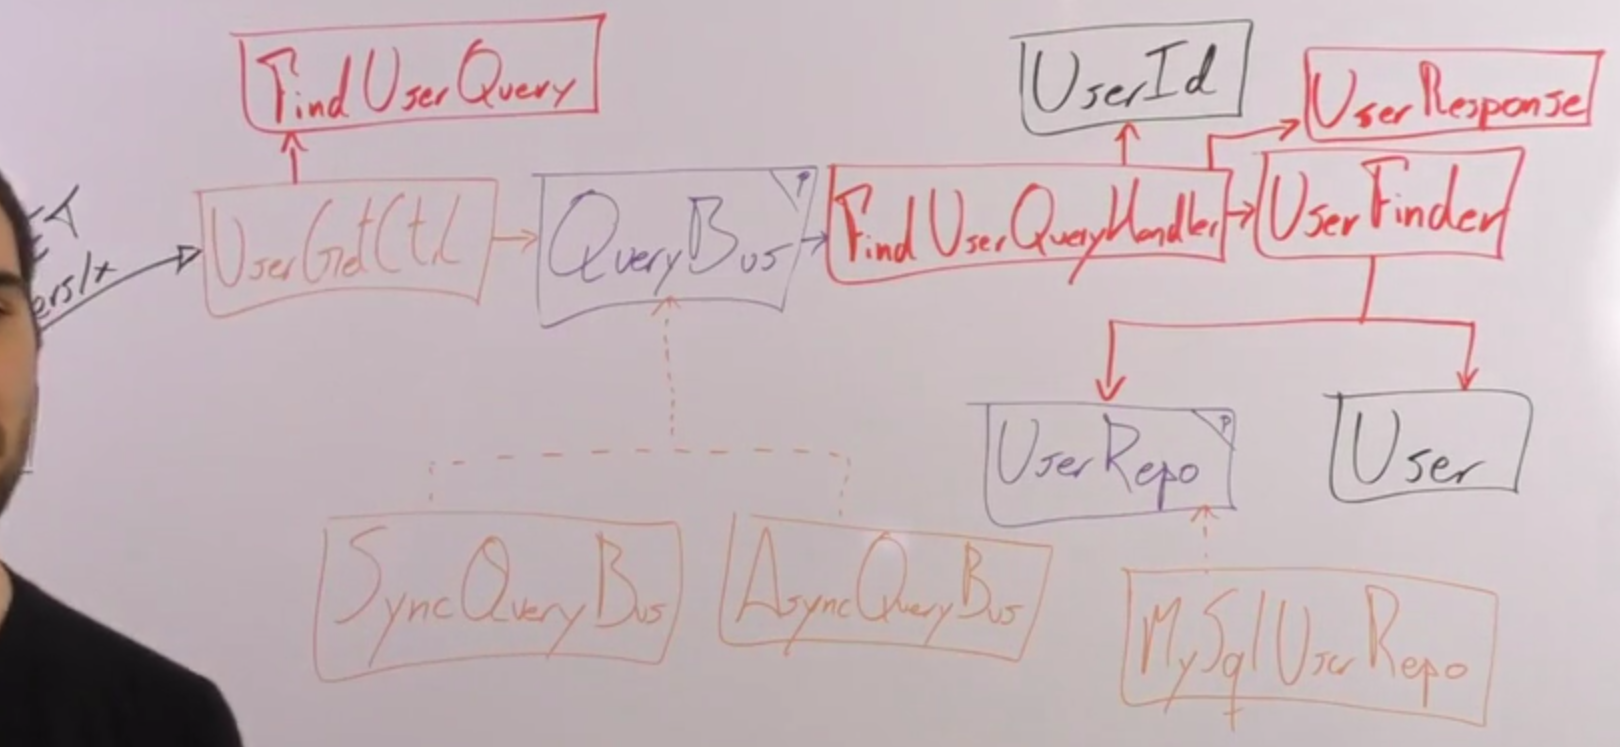 FindUserQuery
UserId
UserResponse
ers/x
UserGetCtrl
QueryBus
P
FindUserQueryHandler
UserFinder
UserRepo
P
User
SyncQueryBus
AsyncQueryBus
MySqlUserRepo